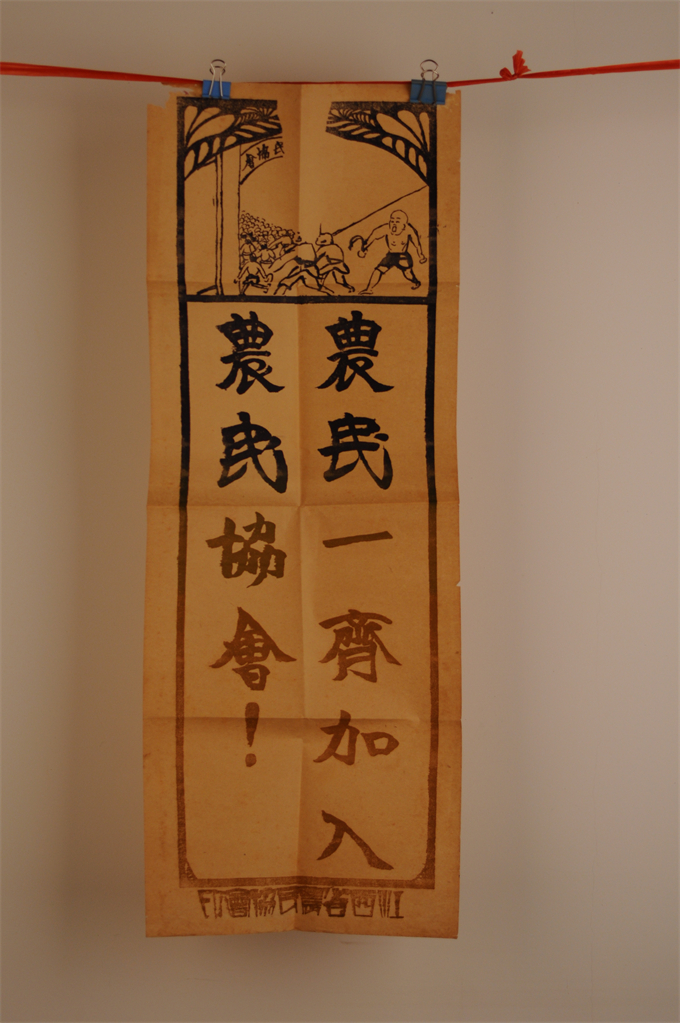 民協會
農民一齊加入
農民協會！
江西省農民協會印